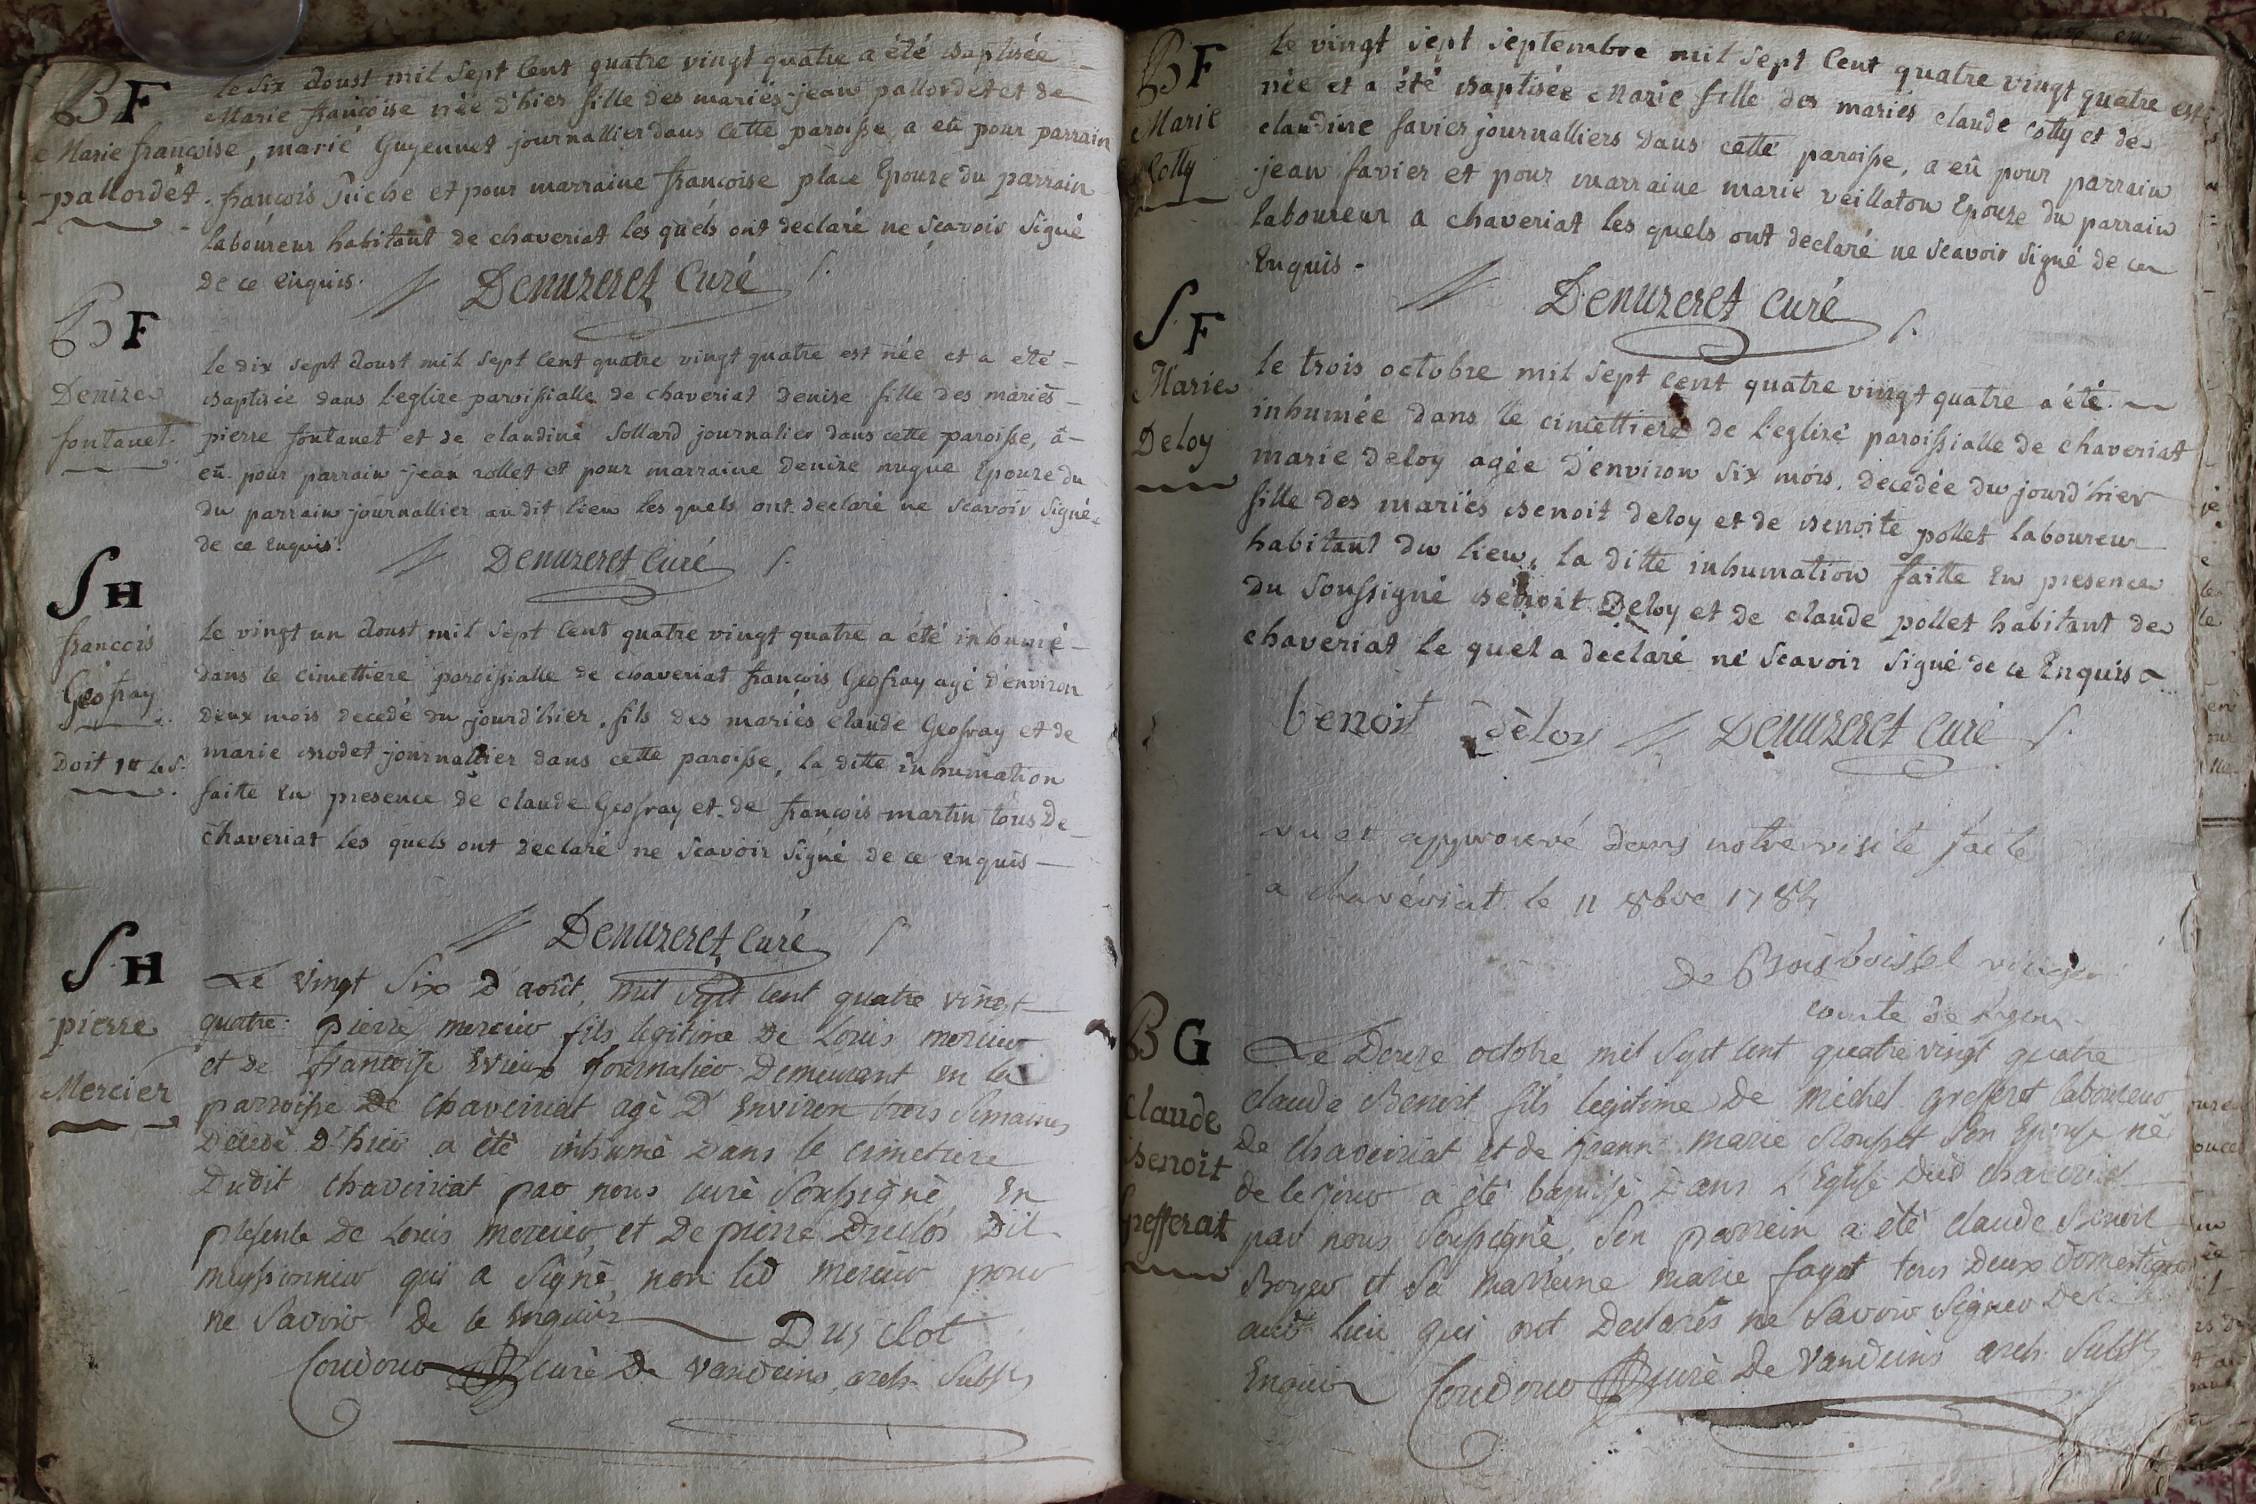 BF
Marie françoise
pallordet.
le six Aoust mil sept Cent quatre vingt quatre a été baptisée
Marie françoise née d'hier fille des mariés jean pallordet et de
marie Guyennet journallier dans cette paroisse a eu pour parrain
françois et pour marraine françoise place Epouse du parrain
laboureur habitant de chaveriat les quels ont declaré ne scavoir signé
de ce Enquis.
Denuzeret Curé
BF
Denize
fontanet.
le dix sept Aoust mil sept Cent quatre vingt quatre est née et a été
baptisée dans l'eglize paroissialle de chaveriat denise fille des mariés
pierre fontanet et de claudine Sollard journalier dans cette paroisse, a
eû pour parrain jean rollet et pour marraine denize nugue Epouse du
du parrain journallier audit lieu les quels ont declaré ne scavoir signé
de ce Enquis.
Denuzeret Curé
SH
francois
Geofray
Doit
le vingt un Aoust mil sept Cent quatre vingt quatre a été inhumé
dans le cimettiere paroissialle de chaveriat françois Geofray agé d'environ
deux mois decedé du jourd'hier, fils des mariés claude Geofray et de
marie brodet journallier dans cette paroisse, la ditte inhumation
faitte en presence de claude Geofray et de françois martin tous de
chaveriat les quels ont declaré ne scavoir signé de ce enquis
Denuzeret Curé
SH
pierre
Mercier
Le vingt Six d'août, mil sept cent quatre vingt
quatre pierre mercier fils legitime de Louis mercier
et de francoise journalier Demeurant en la
parroisse de chaveiriat agé d'Environ trois Semaines
Décédé d'hier a été inhumé dans le cimetiere
dudit chaveiriat par nous curé soussigné, En
presence de Louis mercier, et de pierre Duclos dit
missionnier qui a signé, non led mercier pour
ne Savoir de ce enquis
Dus clot
Coudour curé de Vandeins, arch. subst
BF
Marie
Colly
le vingt sept septembre mil sept Cent quatre vingt quatre est
née et a été baptisée Marie fille des mariés claude colly et de
claudine favier journalliers dans cette paroisse, a eû pour parrain
jean favier et pour marraine marie veillaton Epouse du parrain
laboureur a chaveriat les quels ont declaré ne scavoir signé de ce
Enquis.
Denuzeret Curé
SF
Marie
Deloy
le trois octobre mil sept cent quatre vingt quatre a été
inhumée dans le cimettiere de l'eglize paroissialle de chaveriat
marie deloy agée d'environ six mois, decedée du jourd'hier
fille des mariés benoit deloy et de benoite pollet laboureur
habitant du lieu, la ditte inhumation faitte en presence
du soussigné benoit Deloy et de claude pollet habitant de
chaveriat le quel a declaré ne scavoir signé de ce Enquis
benoit déloy
Denuzeret Curé
vu et approuvé dans notre visite faite
a chavériat le 11 8bre 1784
de Boisboissel
comte de Lyon
BG
Claude
benoît
Grefferat
Le Douze octobre mil sept cent quatre vingt quatre
claude Benoit fils legitime de michel grefferet laboureur
de chaveiriat et de jeanne marie Rousset son Epouse né
de ce jour a été baptisé dans L'Eglise dud chaveiriat
par nous soussigné, son parrein a été claude Benoit
Boyer et sa marreine marie fayot tous deux domestiques
aud. lieu qui ont declarés ne savoir signer de ce
Enquis
Coudour curé de Vandeins arch. subst